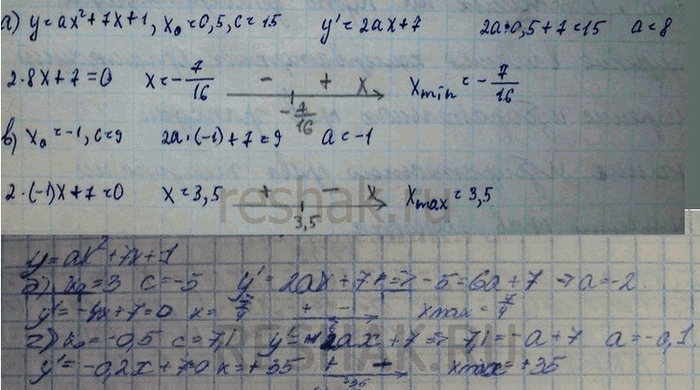 а) y=ax²+7x+1, x₀=0,5, c=15 y'=2ax+7 2a·0,5+7=15 a=8
2·8x+7=0 x=-7/16 - + x -7/16 xmin=-7/16
в) x₀=-1, c=9 2a·(-1)+7=9 a=-1
2·(-1)x+7=0 x=3,5 + - x 3,5 xmax=3,5
reshak.ru
y=ax²+7x+1
б) x₀=3 c=-5 y'=2ax+7 => -5=6a+7 => a=-2.
y'=-4x+7=0 x=7/4 + - xmax=7/4
г) x₀=-0,5 c=7,1 y'=2ax+7 => 7,1=-a+7 a=-0,1
RESHAK.RU
y'=-0,2x+7=0 x=+35 + xmax=+35